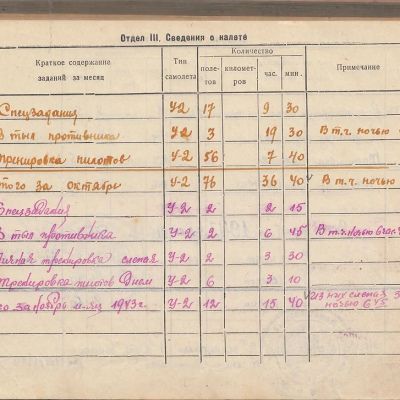 Отдел III. Сведения о налете
Краткое содержание заданий за месяц | Тип самолета | Количество | Примечание
полетов | километров | час. | мин.
Спецзадания | У-2 | 17 | 9 | 30
В тыл противника | У-2 | 3 | 19 | 30 | В т.ч. ночью
Тренировка пилотов | У-2 | 56 | 7 | 40
того за октябрь | У-2 | 76 | 36 | 40 | В т.ч. ночью
Спецзадания | У-2 | 2 | 2 | 15
В тыл противника | У-2 | 2 | 6 | 45 | В т.ч. ночью
тренировка слепая | У-2 | 2 | 3 | 30
Тренировка пилотов Днем | У-2 | 6 | 3 | 10
го за ноябрь м-ц 1943г. | У-2 | 12 | 15 | 40 | Из них слепая
ночью